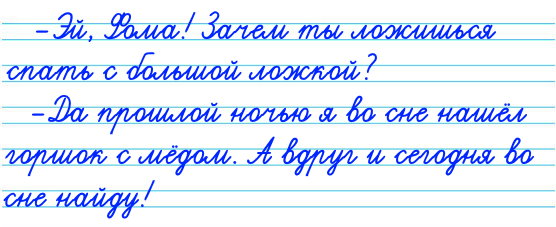 –Эй, Фома! Зачем ты ложишься
спать с большой ложкой?
–Да прошлой ночью я во сне нашёл
горшок с мёдом. А вдруг и сегодня во
сне найду!